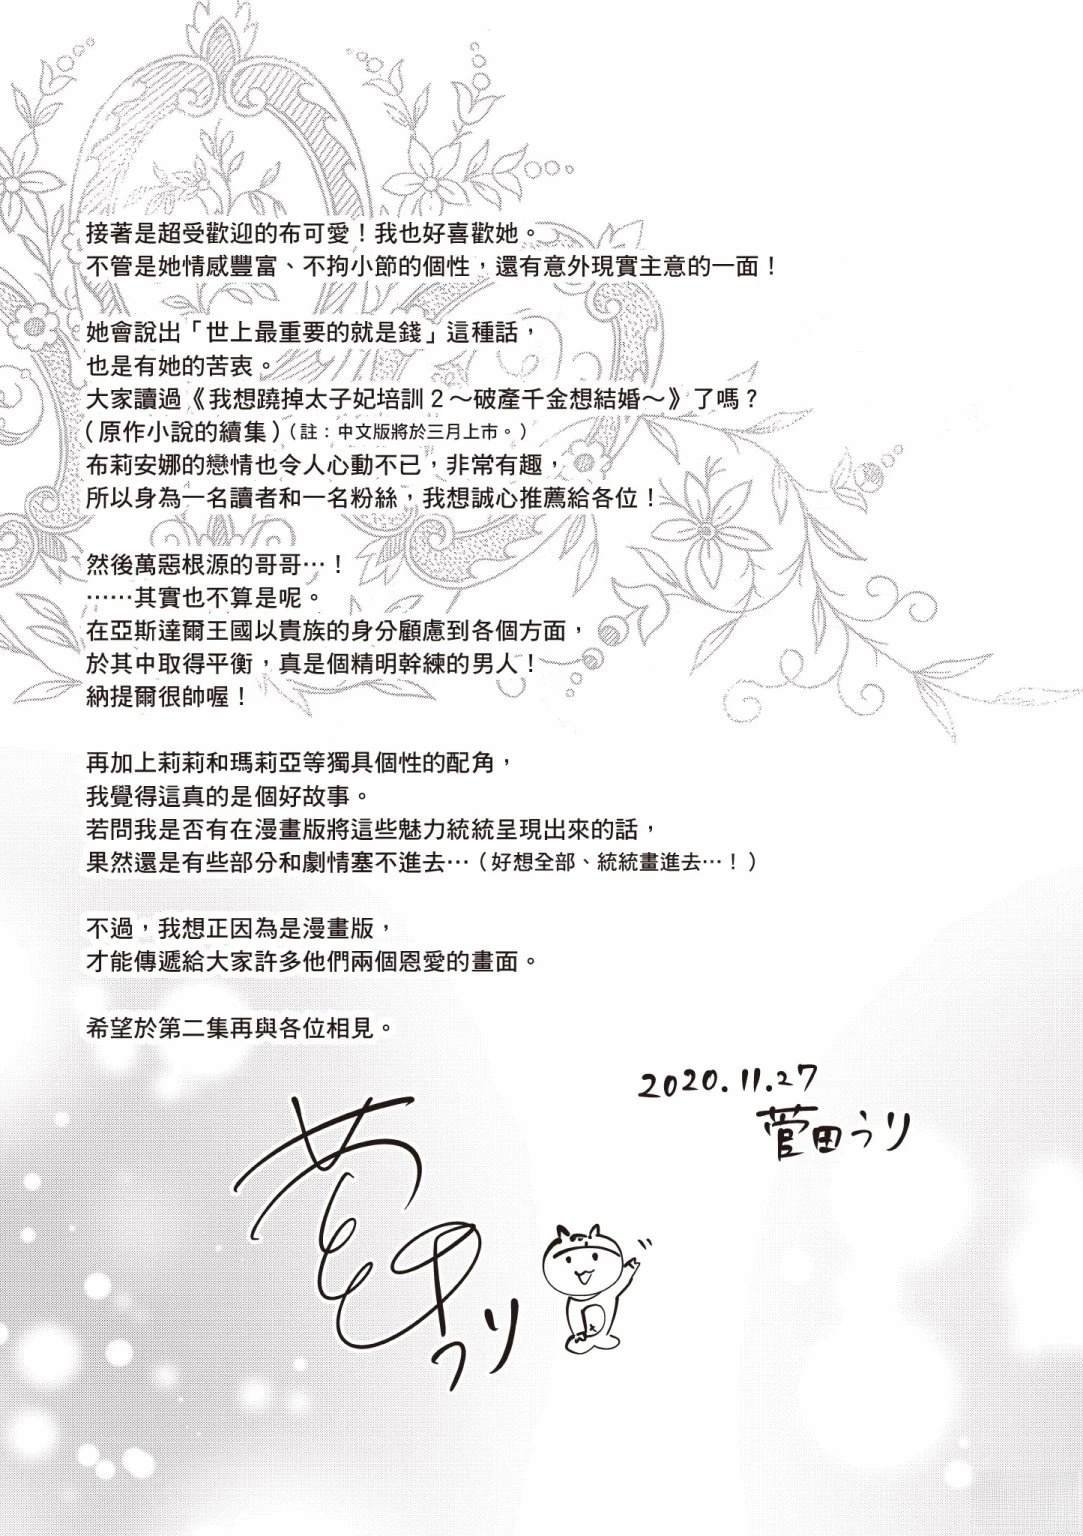 接著是超受歡迎的布可愛！我也好喜歡她。
不管是她情感豐富、不拘小節的個性，還有意外現實主意的一面！
她會說出「世上最重要的就是錢」這種話，
也是有她的苦衷。
大家讀過《我想蹺掉太子妃培訓2～破產千金想結婚～》了嗎？
（原作小說的續集）（註：中文版將於三月上市。）
布莉安娜的戀情也令人心動不已，非常有趣，
所以身為一名讀者和一名粉絲，我想誠心推薦給各位！
然後萬惡根源的哥哥…！
……其實也不算是呢。
在亞斯達爾王國以貴族的身分顧慮到各個方面，
於其中取得平衡，真是個精明幹練的男人！
納提爾很帥喔！
再加上莉莉和瑪莉亞等獨具個性的配角，
我覺得這真的是個好故事。
若問我是否有在漫畫版將這些魅力統統呈現出來的話，
果然還是有些部分和劇情塞不進去…（好想全部、統統畫進去…！）
不過，我想正因為是漫畫版，
才能傳遞給大家許多他們兩個恩愛的畫面。
希望於第二集再與各位相見。
2020.11.27
菅田うり
菅田うり